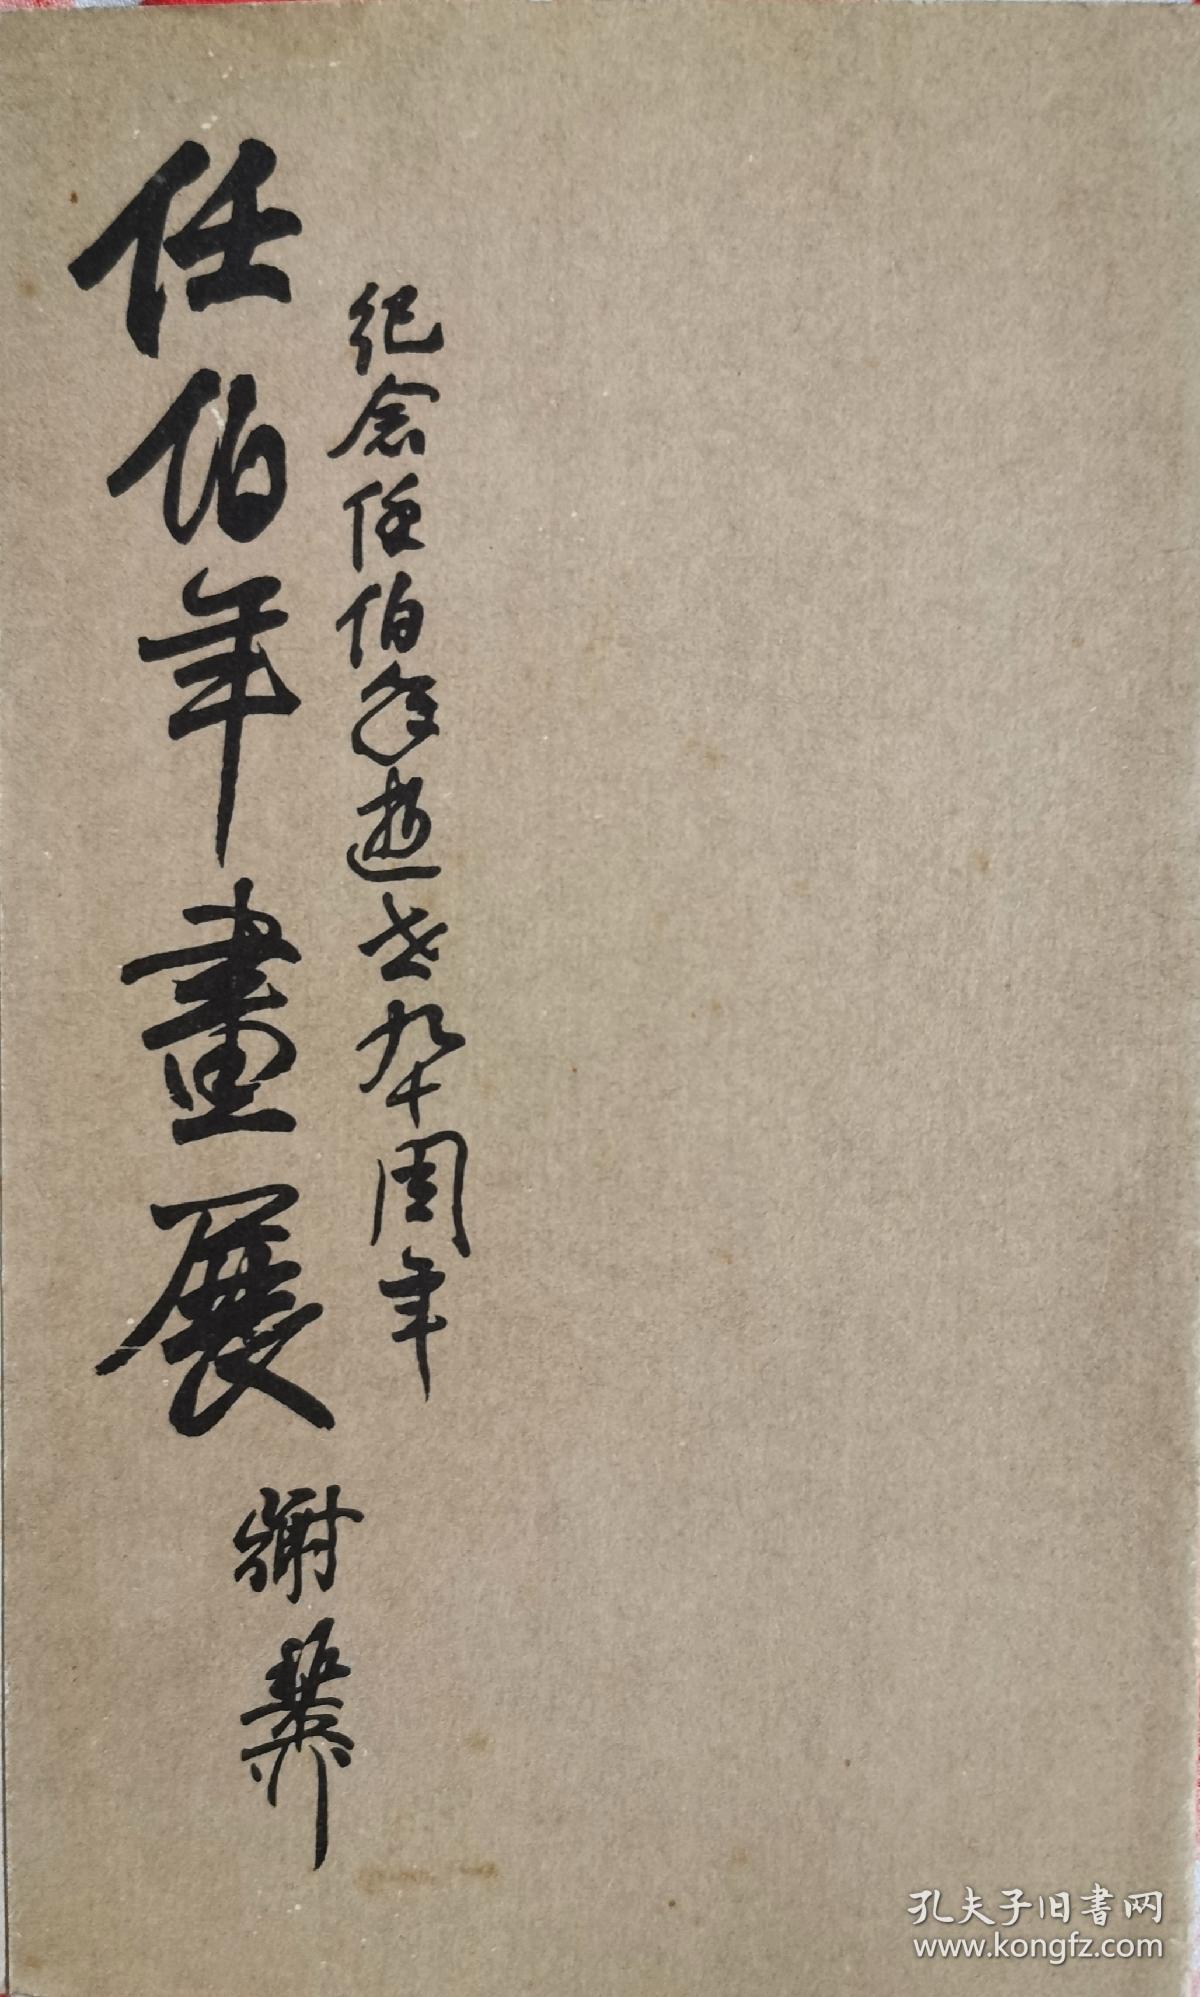 纪念任伯年逝世九十周年
任伯年畫展
謝
孔夫子旧書网
www.kongfz.com